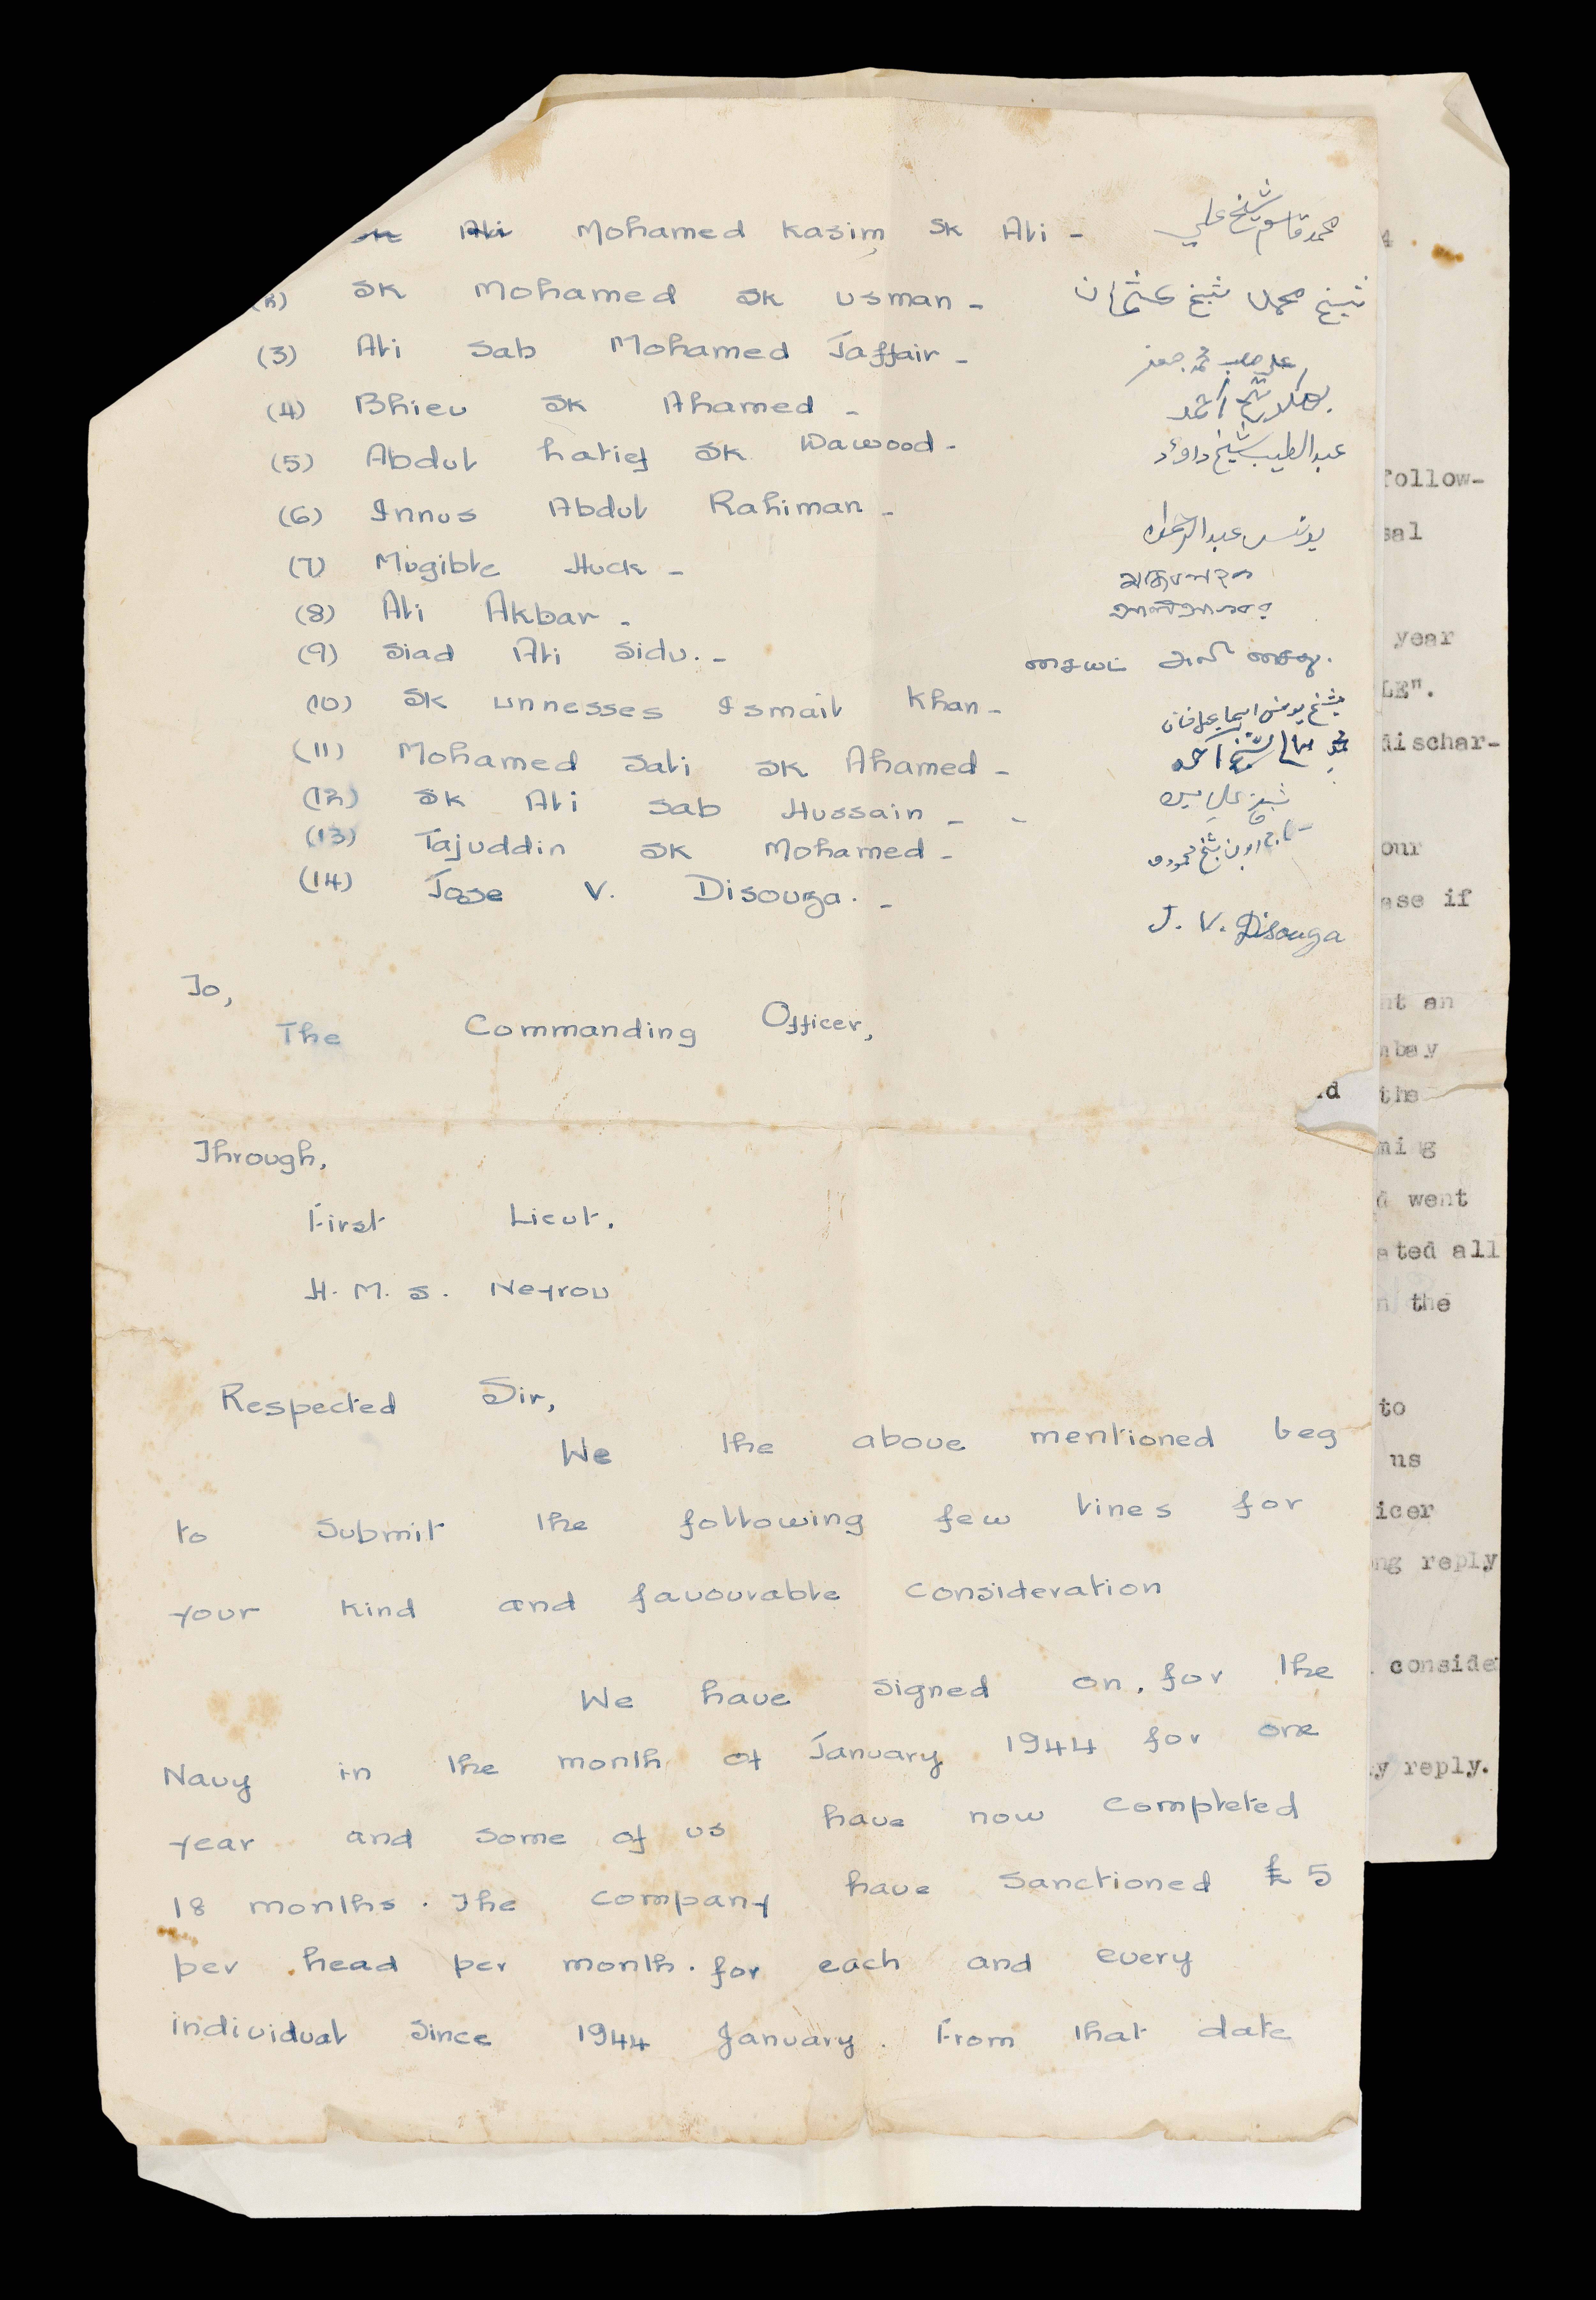 Mohamed Kasim Sk Ali - محمد قاسم شيخ علي
Sk Mohamed Sk Usman - شيخ محمد شيخ عثمان
(3) Ali Sab Mohamed Jaffair - علي صاحب محمد جعفر
(4) Bhieu Sk Ahamed - شيخ احمد
(5) Abdul Latief Sk Dawood - عبد الطيب شيخ داوؤد
(6) Innus Abdul Rahiman - يونس عبدالرحمان
(7) Mugible Huck -
(8) Ali Akbar -
(9) Siad Ali Sidu. - சையட் அலி
(10) Sk Unnesses Ismail Khan - شيخ يونس اسماعيل خان
(11) Mohamed Sali Sk Ahamed -
(12) Sk Ali Sab Hussain - -
(13) Tajuddin Sk Mohamed -
(14) Jose V. Disouza. - J. V. Disouza
To,
The Commanding Officer,
Through,
First Lieut.
H. M. S. Neyrou
Respected Sir,
We the above mentioned beg
to submit the following few lines for
your kind and favourable consideration
We have signed on. for the
Navy in the month of January 1944 for one
year and some of us have now completed
18 months. The company have sanctioned £ 5
per head per month. for each and every
individual since 1944 January. From that date
4
follow-
sal
year
LE".
dischar-
our
ase if
nt an
mbay
the
ming
d went
ated all
n the
to
us
icer
ng reply
conside
y reply.